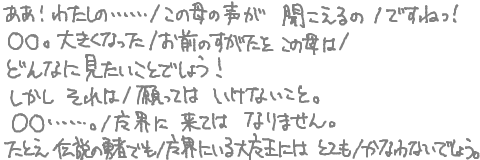 ああ！わたしの……/この母の声が 聞こえるの/ですねっ！
○○。大きくなった/お前のすがたを この母は/
どんなに見たいことでしょう！
しかし それは/願っては いけないこと。
○○……。/魔界に 来ては なりません。
たとえ 伝説の勇者でも/魔界にいる大魔王には とても/かなわないでしょう。